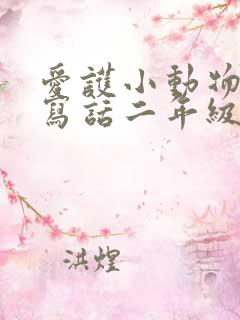 愛護小動物
寫話二年級
洪煌